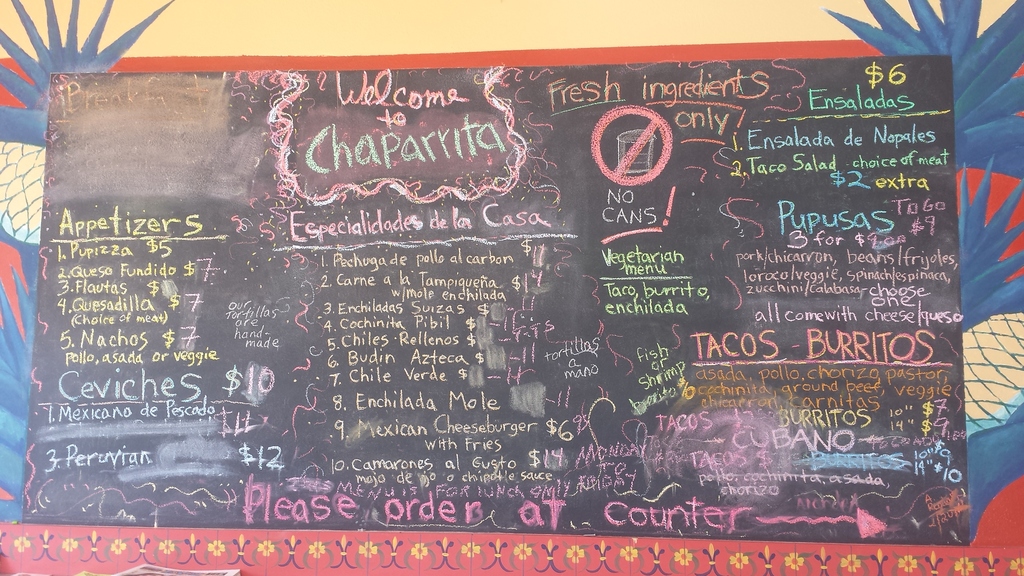 Welcome
to
Chaparrita
Appetizers
1. Pupizza $5
2. Queso Fundido $7
3. Flautas $
4. Quesadilla $7
(choice of meat)
5. Nachos $7
pollo, asada or veggie
our tortillas are hand made
Ceviches $10
1. Mexicano de Pescado
3. Peruvian $12
Especialidades de la Casa
1. Pechuga de pollo al carbon $11
2. Carne a la Tampiqueña
w/mole enchilada
3. Enchiladas Suizas $
4. Cochinita Pibil $
5. Chiles Rellenos $
6. Budin Azteca $ 11
7. Chile Verde $ 11
8. Enchilada Mole
9. Mexican Cheeseburger $6
with Fries
10. Camarones al Gusto $14
chipotle sauce
tortillas
a
mano
Fresh ingredients
only!
NO
CANS!
Vegetarian
menu
Taco, burrito,
enchilada
fish
or
shrimp
$6
Ensaladas
1. Ensalada de Nopales
2. Taco Salad choice of meat
$2 extra
Pupusas
To Go
3 for $7
pork/chicarron, beans/frijoles,
loroco/veggie, spinach/espinaca,
zucchini/calabasa - choose
one!
all come with cheese/queso
TACOS BURRITOS
asada, pollo, chorizo, pastor
cochinita, ground beef, veggie
carnitas
TACOS BURRITOS 10"
14"
CUBANO
TACO
10" 9
14" $10
pollo, cochinita, asada,
chorizo
Please order at counter